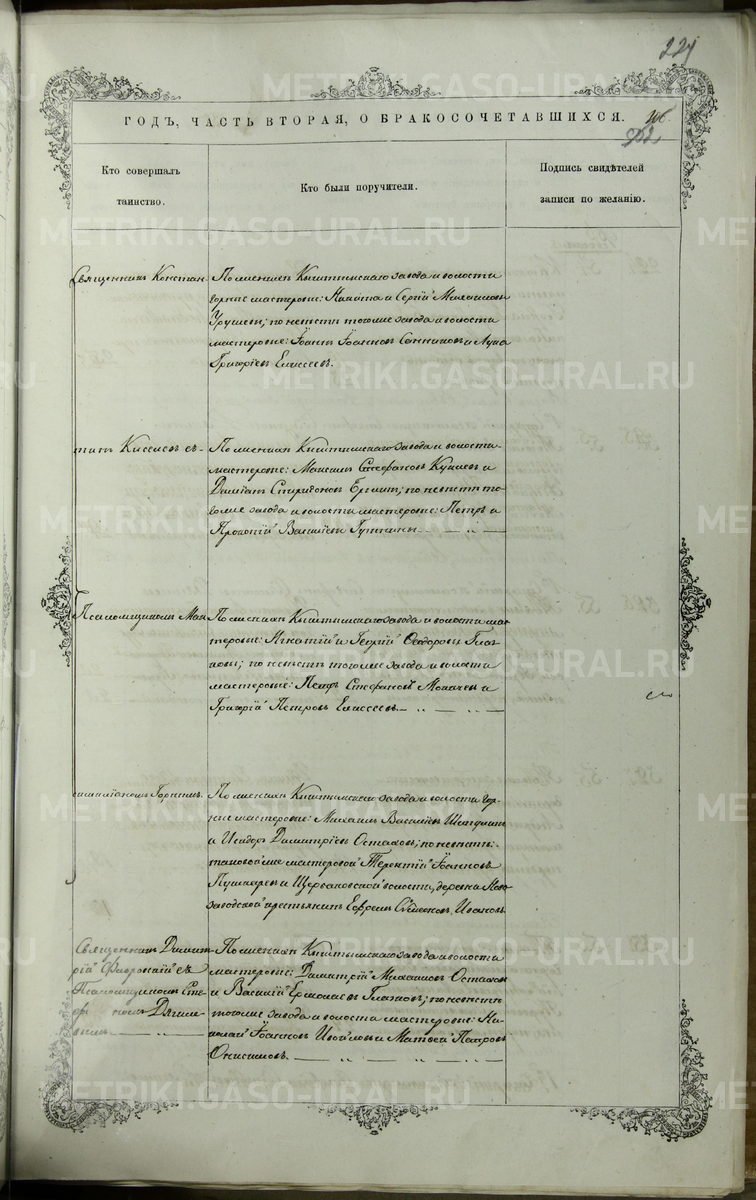 224
METRIKI.GASO-URAL.RU
ГОДЪ, ЧАСТЬ ВТОРАЯ, О БРАКОСОЧЕТАВШИХСЯ.
Кто совершалъ таинство.
Кто были поручители.
Подпись свидѣтелей записи по желанію.
Священникъ Констан-
По женихѣ Кыштымскаго завода и волости
горные мастеровые: Никита и Сергій
по невѣстѣ тогоже завода и волости
мастеровые: Іоаннъ Іоанновъ Санниковъ и Лука
Григорьевъ Елисеевъ.
тинъ Киселевъ съ-
По женихѣ Кыштымскаго завода и волости
мастеровые: Максимъ Стефановъ и
Даміанъ Спиридоновъ по невѣстѣ то-
гоже завода и волости мастеровые: Петръ и
Прокопій Василіевы
Псаломщикомъ
По женихѣ Кыштымскаго завода и волости мас-
теровые: Игнатій и Георгій Ѳеодоровы Глаз-
ковы; по невѣстѣ тогоже завода и волости
мастеровые: Петръ Стефановъ и
Григорій Петровъ Елисеевъ.
По женихѣ Кыштымскаго завода и волости гор-
ные мастеровые: Михаилъ Василіевъ
и Исидоръ Димитріевъ Остаховъ; по невѣстѣ:
таковой же мастеровой Терентій Іоанновъ
Пушкаревъ и Щербаковской волости, деревни Ново-
заводской крестьянинъ Ефремъ Симеоновъ Ивановъ
Священникъ Димит-
рій съ
Псаломщикомъ Сте-
По женихѣ Кыштымскаго завода и волости
мастеровые: Димитрій Михаиловъ Остахов
и Василій Ермолаевъ Глазковъ; по невѣстѣ
тогоже завода и волости мастеровые: Ни-
колай Іоанновъ и Матвей Петровъ
Онисимовъ.